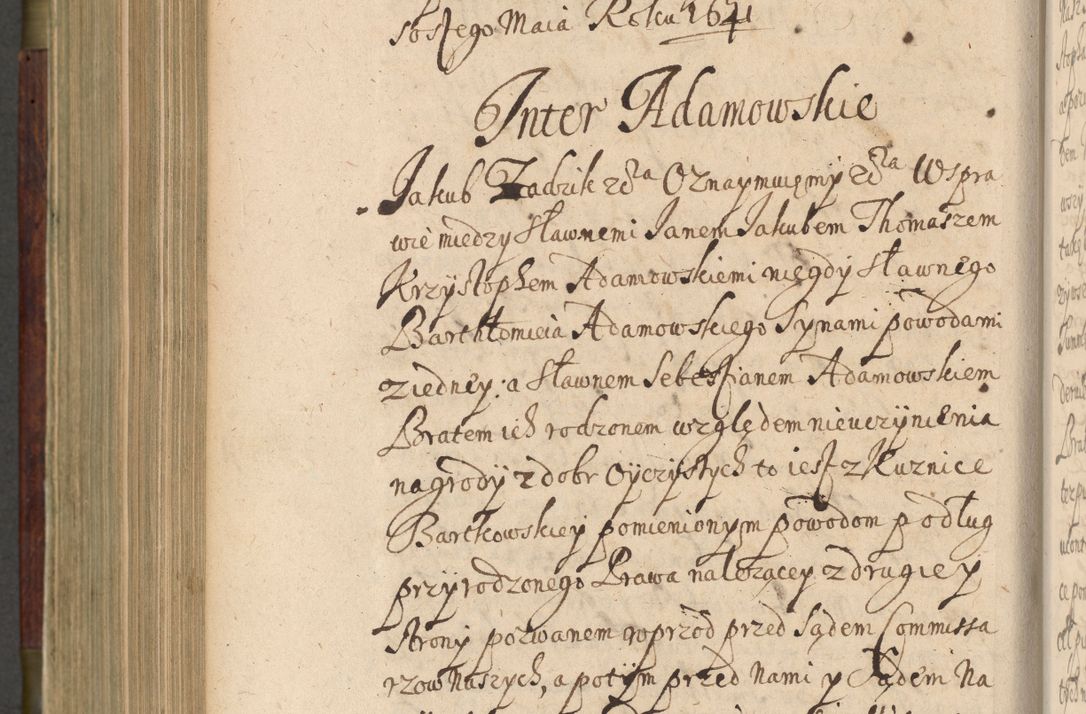 sostego Maia Roku 1641
Inter Adamowskie
Jakub Zadzik etca Oznaymuiemy etca W spra
wie między Sławnemi Janem Jakubem Thomaszem
Krzysztophem Adamowskiemi niegdy Sławnego
Barthłomieia Adamowskiego Synami powodami
z iedney: a Sławnem Sebestianem Adamowskiem
Bratem ich rodzonem względem nieuczynienia
nagrody z dobr Oyczystych to iest z Kuznice
Bartkowskiey pomienionym powodom podług
przyrodzonego Prawa nalezącey z drugiey
strony pozwanem wprzod przed Sądem Commissa
rzow Naszych, a potym przed Nami y Sądem Na